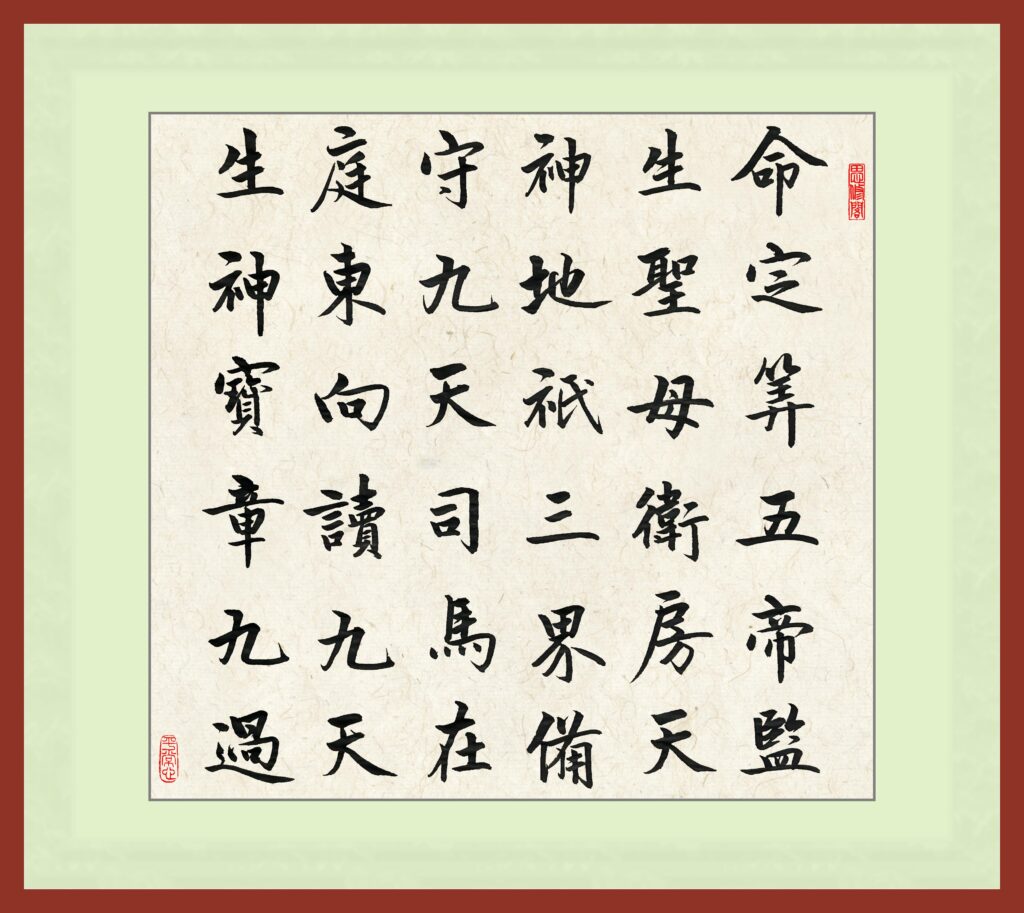 命定筭五帝監
生聖母衛房天
神地祇三界備
守九天司馬在
庭東向讀九天
生神寶章九過
平常心